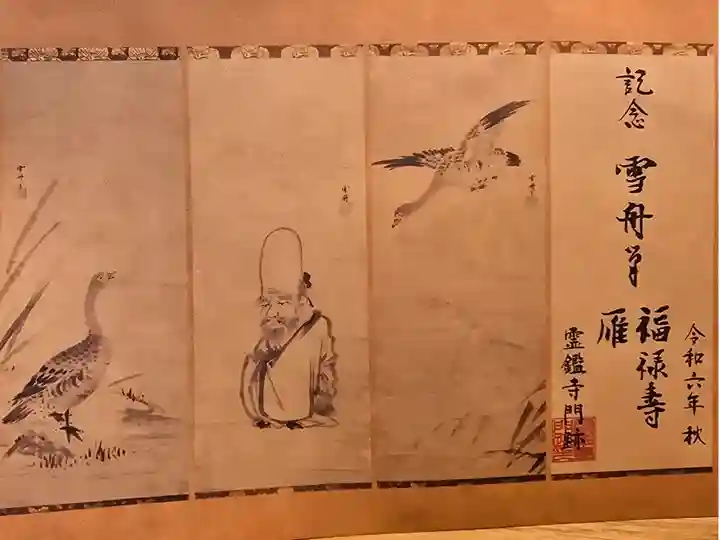 記念
雪舟筆
福禄寿
雁
令和六年 秋
霊鑑寺門跡
雪舟